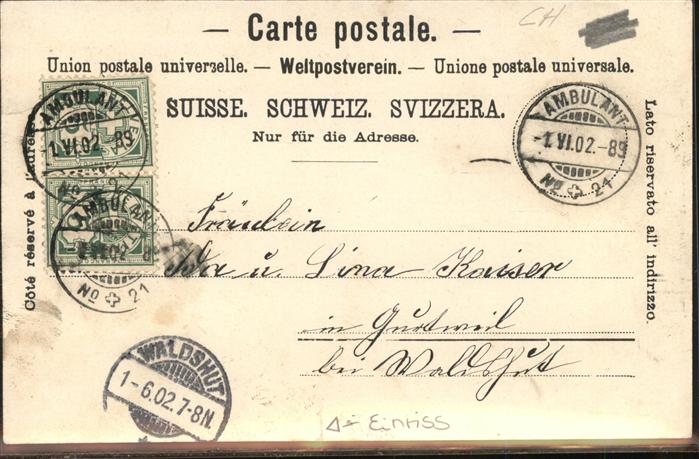 CH
— Carte postale. —
Union postale universelle. — Weltpostverein. — Unione postale universale.
SUISSE. SCHWEIZ. SVIZZERA.
Nur für die Adresse.
Côté réservé à l'adresse
Lato riservato all' indirizzo.
AMBULANT
1.VI.02.-8
No 21
AMBULANT
VI.02
No 21
AMBULANT
-1.VI.02.-8
No 21
Fräulein
Ida u. Lina Kaiser
in Gurtweil
bei Waldshut
WALDSHUT
1-6.02.7-8N.
Einriss